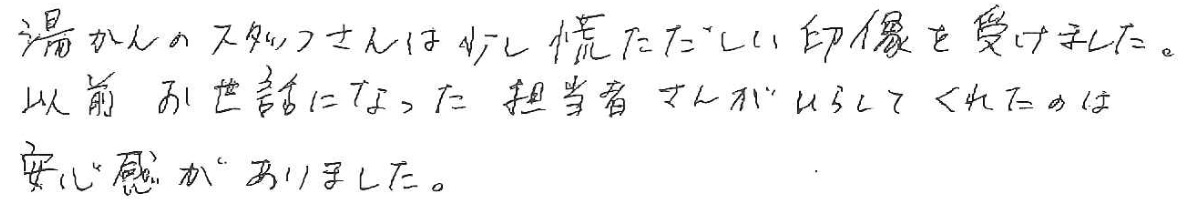 湯かんのスタッフさんは少し慌ただしい印像を受けました。
以前お世話になった担当者さんがいらしてくれたのは
安心感がありました。